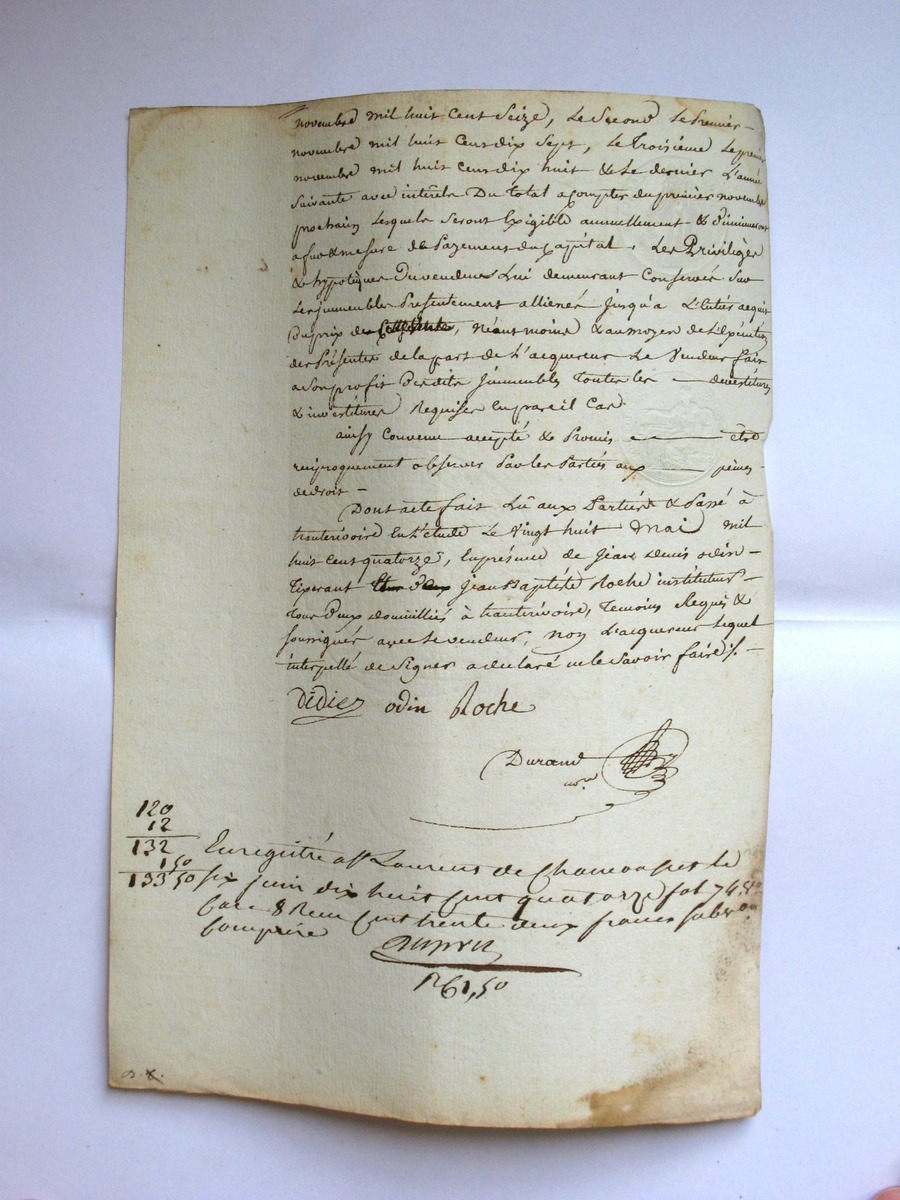 novembre mil huit cent seize, Le Second Le Premier
novembre mil huit Cent dix Sept, Le Troisième Le premier
novembre mil huit Cent dix huit & Le dernier L'année
Suivante avec intérêts Du Total a Compter du premier novembre
prochain Lesquels Seront Exigible annuellement & Diminueront
a fur & mesure des Payemens du Capital. Les Privilèges
& hypotèques Du vendeur Lui demeurant Conservés Sur
Les immeubles Présentement alliénés Jusqu'a L'Entier acquit
Du prix de Cette vente, Néantmoins & au moyen de L'Exécution
des Présentes de la part de L'acquereur Le Vendeur fait
a Son profit Desdits Jmmeubles Toutes les devestitures
& investitures Requises En pareil Cas
ainsy Convenu accepté & Promis être
reciproquement observer Par les Parties aux peines
de droit
Dont acte fait Lû aux Parties & Passé à
hauterivoire En L'étude Le Vingt huit Mai mil
huit Cent quatorze, En présence de Jean Denis odin
Tixerant Jean Baptiste Roche instituteur
Tous Deux domiciliés à hauterivoire, Temoins Requis &
Soussignés avec Le vendeur, non L'acquereur Lequel
interpellé de Signer a déclaré ne le Savoir faire /.
Didier odin Roche
Durand
nore
120
12
132
1 50
133 50
Enregistré a St Laurens de Chamousset le
six juin dix huit cent quatorze fol 74
Case 8 Reçu Cent trente deux francs subvon
Comprise
61,50